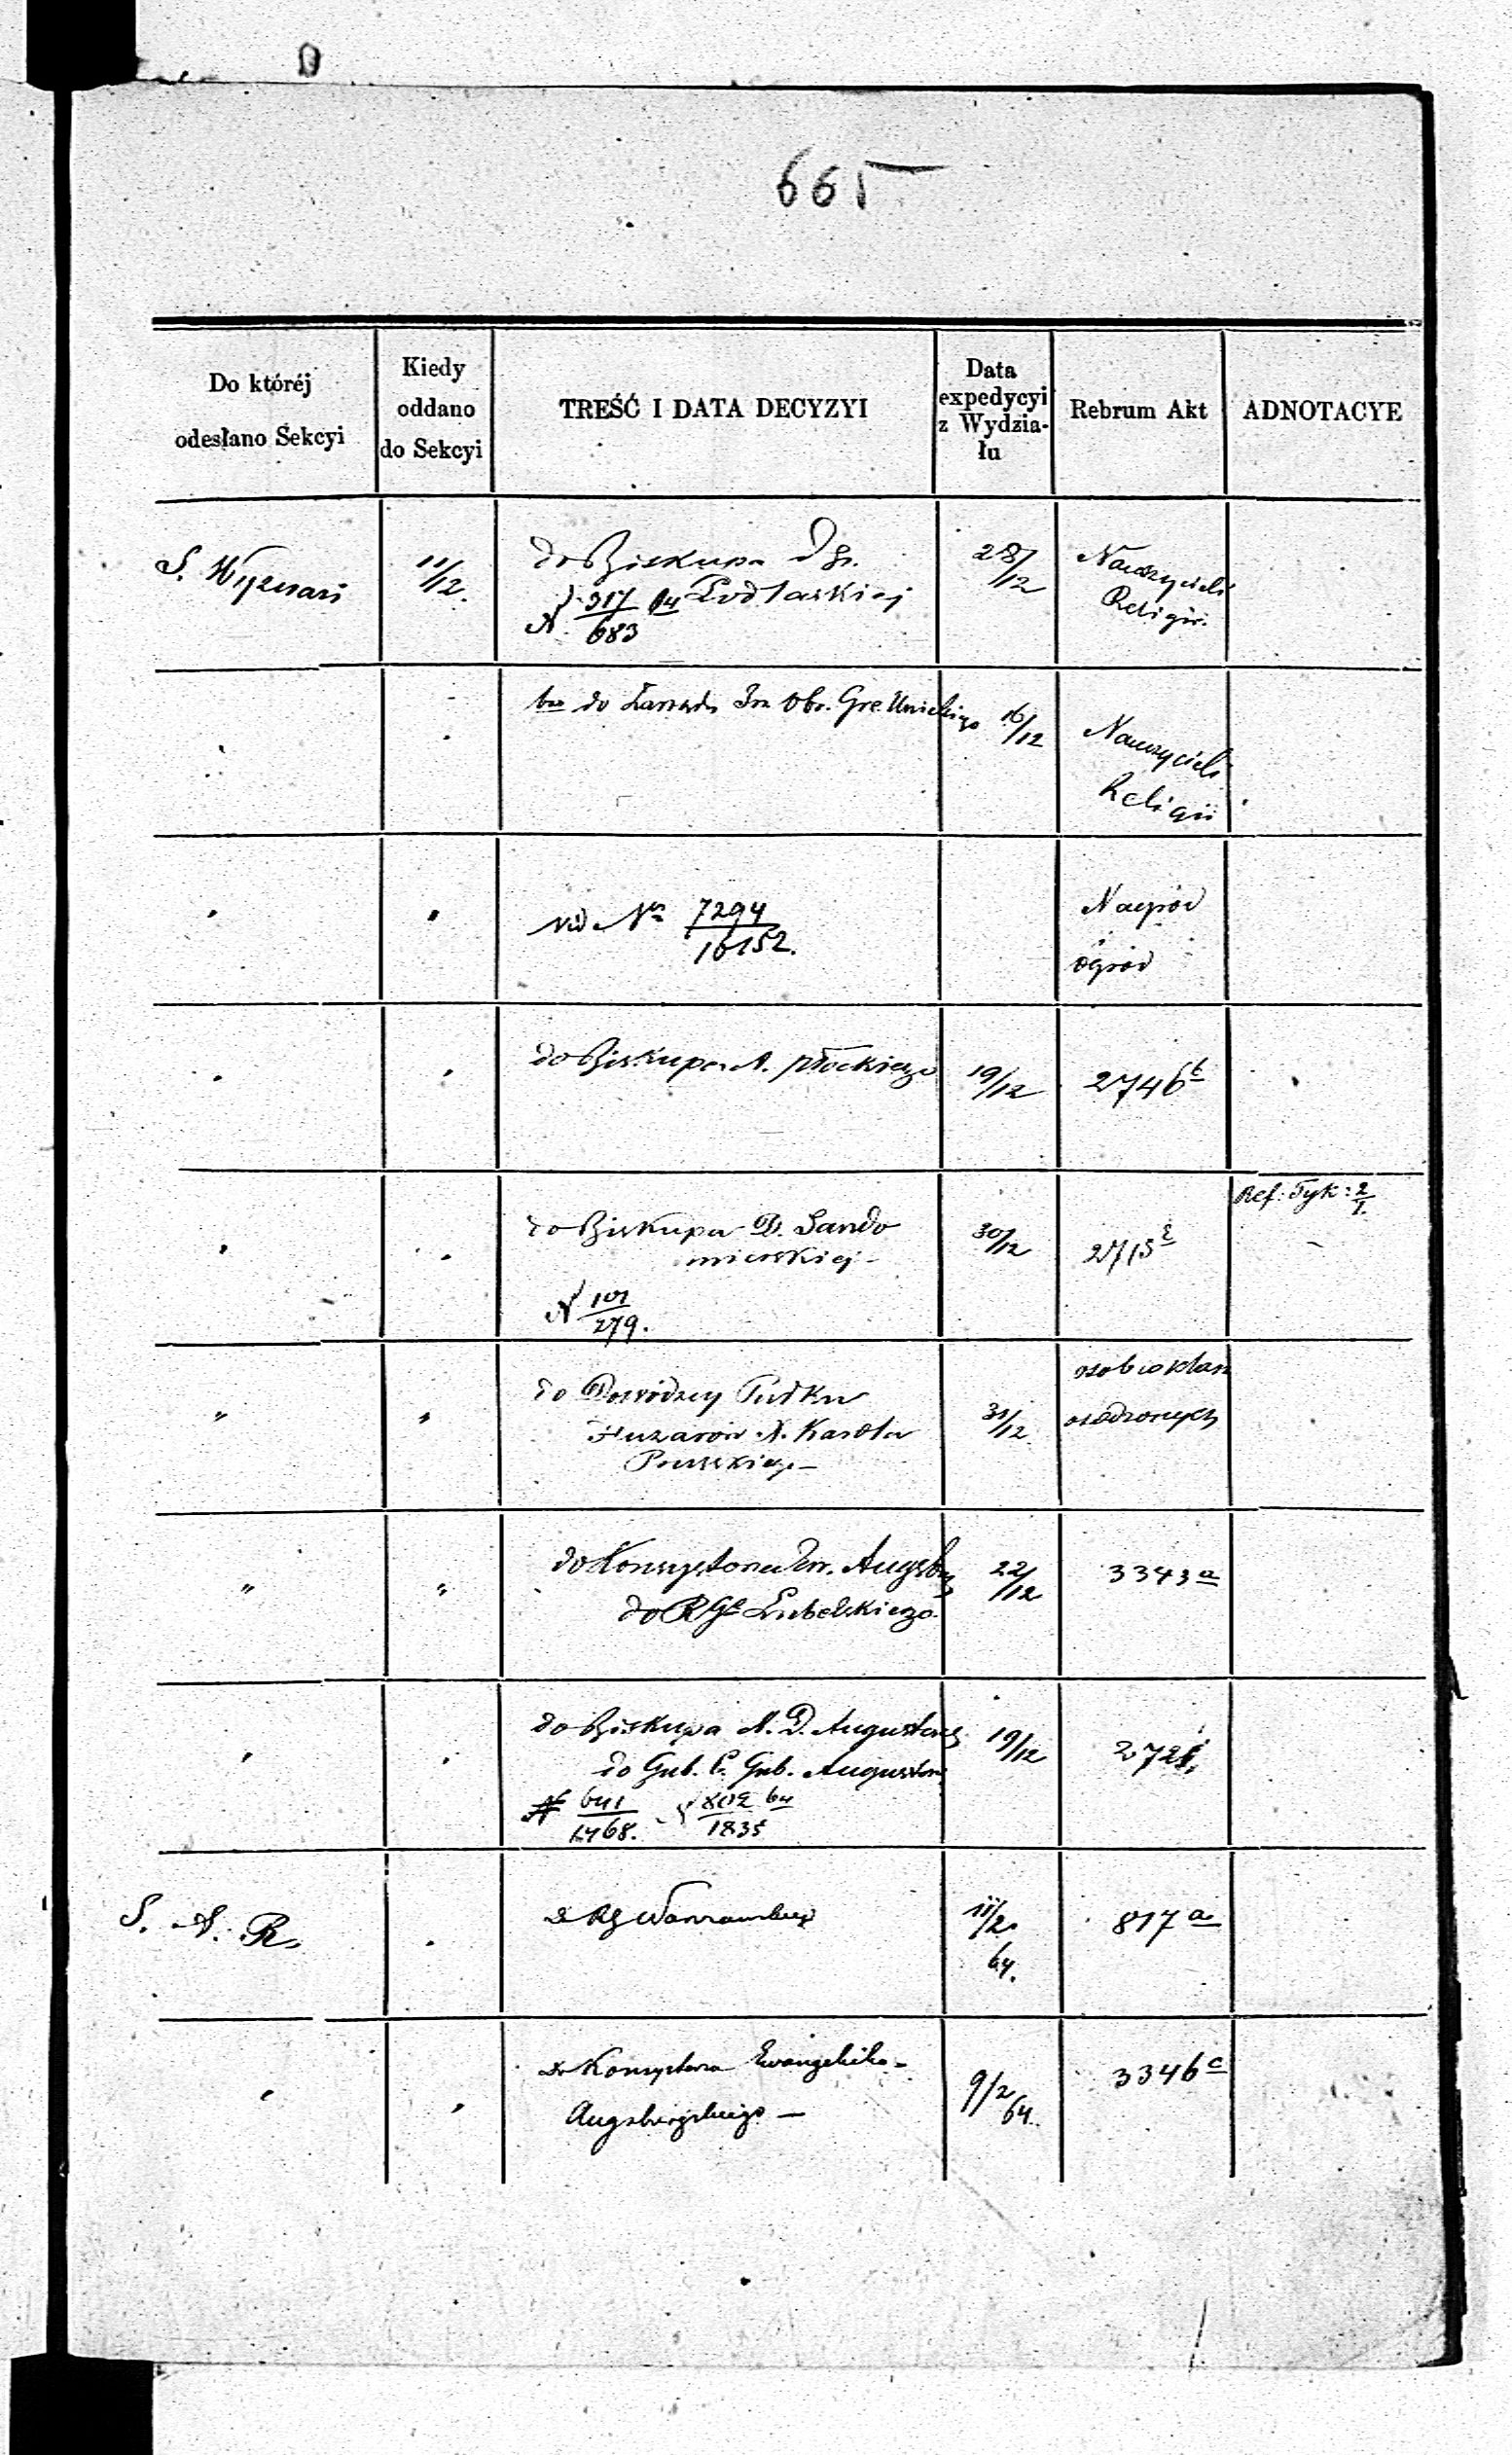 665
Do któréj odesłano Sekcyi
Kiedy oddano do Sekcyi
TREŚĆ I DATA DECYZYI
Data expedycyi z Wydzia-łu
Rebrum Akt
ADNOTACYE
S. Wyznań
11/12.
do Biskupa
Podlaskiej
317/683 64
28/12
Nauczyciele
Religii.
do Obr. Gre. Unickiego
16/12
Nauczyciele
Religii
" "
vid № 7294/16152.
Nagród
ogród
do Biskupa A. płockiego
19/12
2746
do Biskupa D. Sando
mierskiej -
N 101/279.
30/12
2715
Ref: Tyk: 2/1
" "
do Dowódzcy Pułku
Huzarów X. Karola
Pruskiego -
31/12
osób w klasz
osadzonych
" "
do Konsystorza Ew. Augsb
do R Gl Lubelskiego
22/12
3343 a
do Biskupa A. D. Augustows
do Gub. C. Gub. Augustow
N 641/1468. 802/1835 64
19/12
272
S. A. R.
Do RG Warszawskiego
11/2 64.
817 a
Do Konsystorza Ewangelicko-
Augsburgskiego —
9/2 64.
3346 c